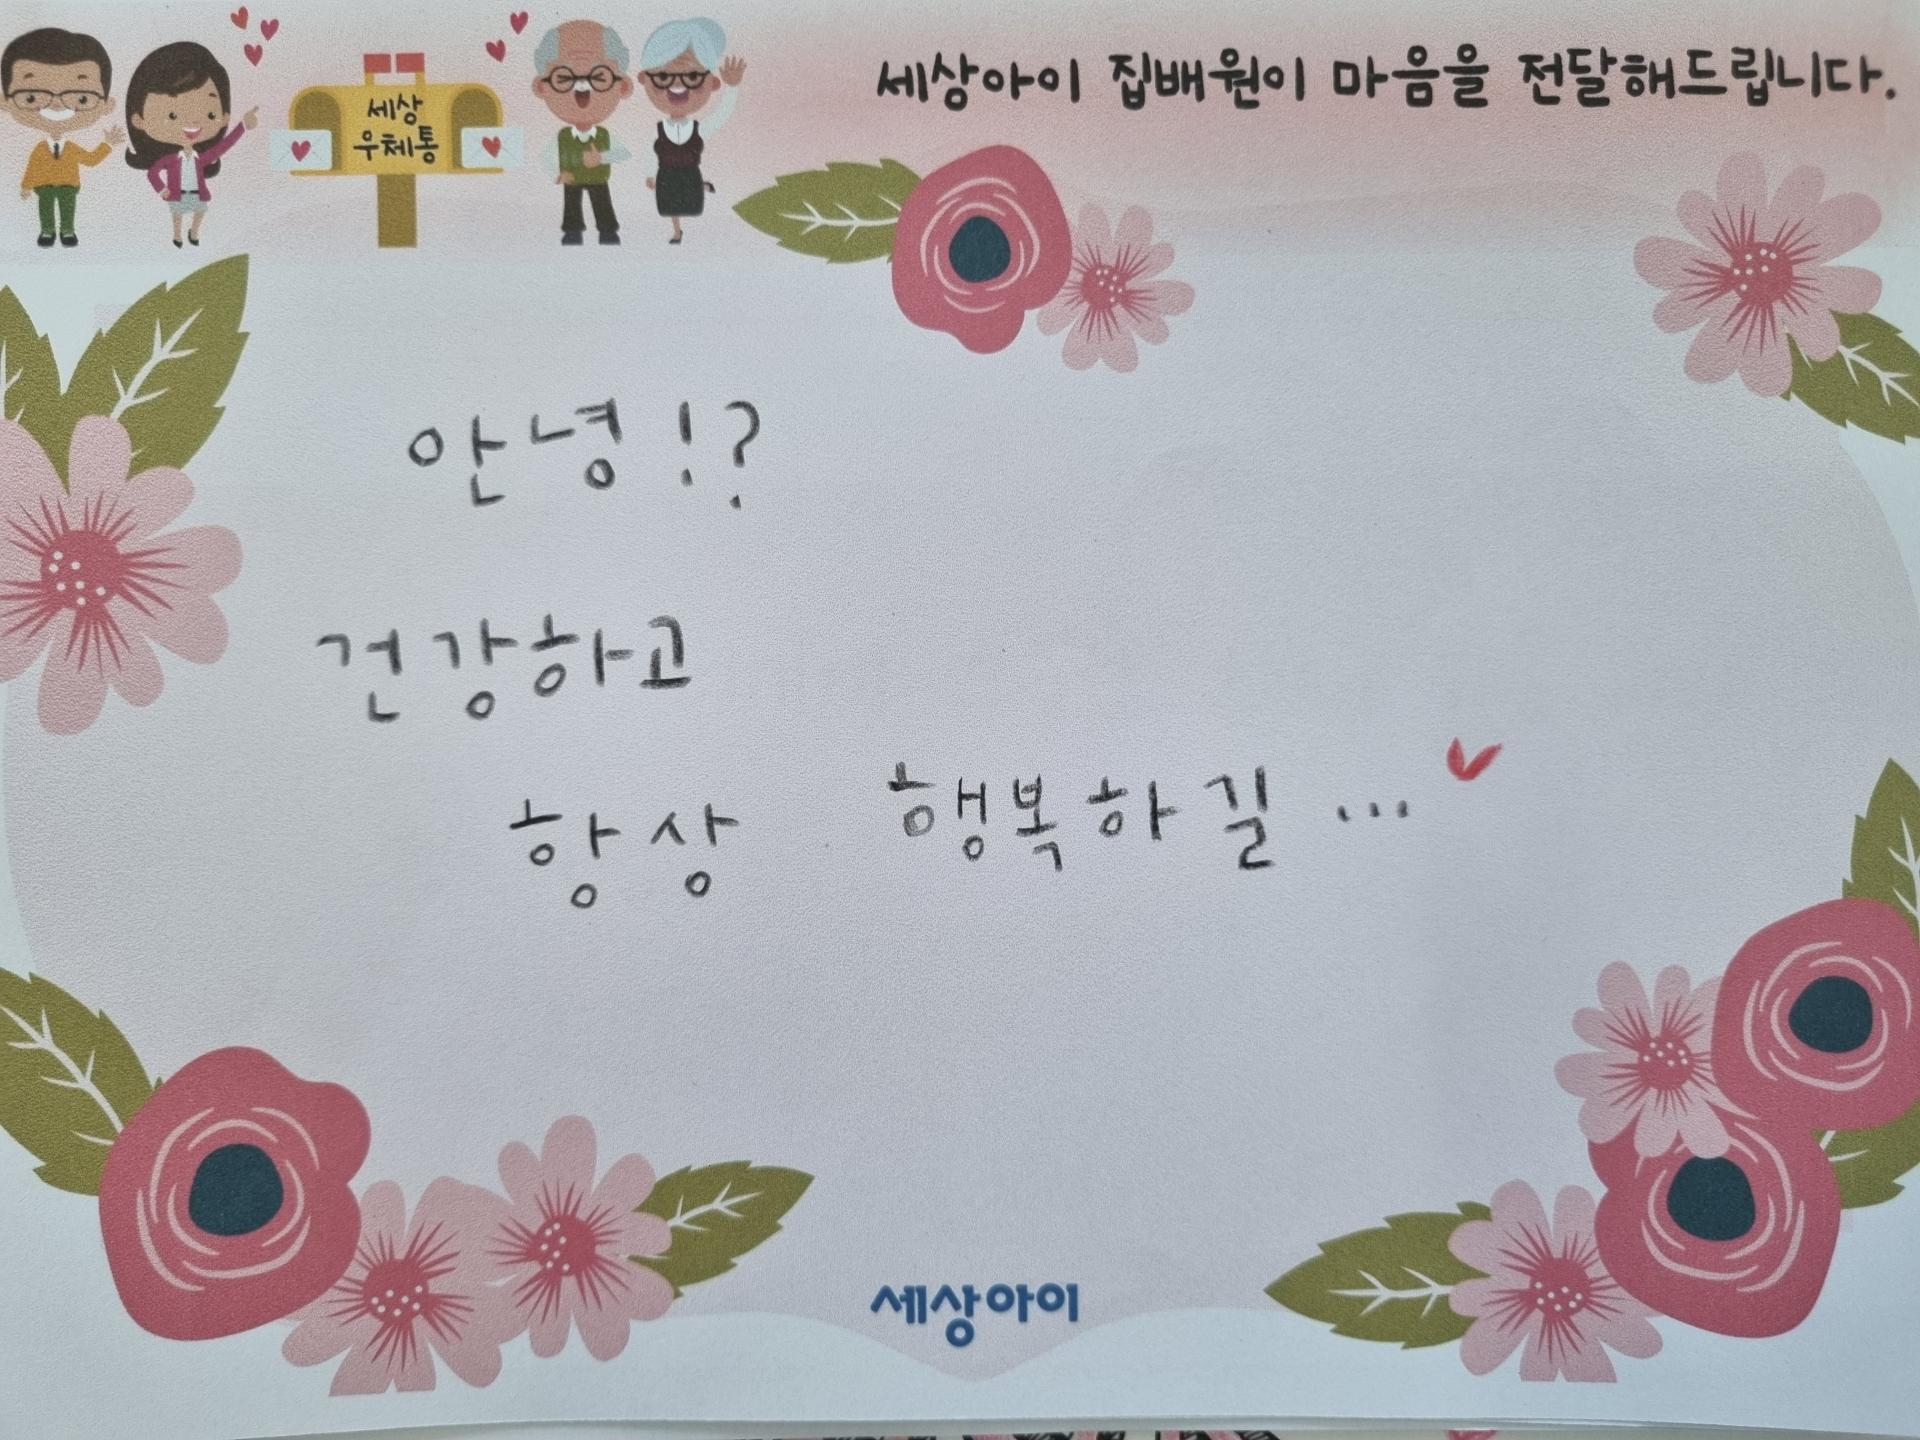 세상아이 집배원이 마음을 전달해드립니다.
세상
우체통
안녕!?
건강하고
항상 행복하길...
세상아이